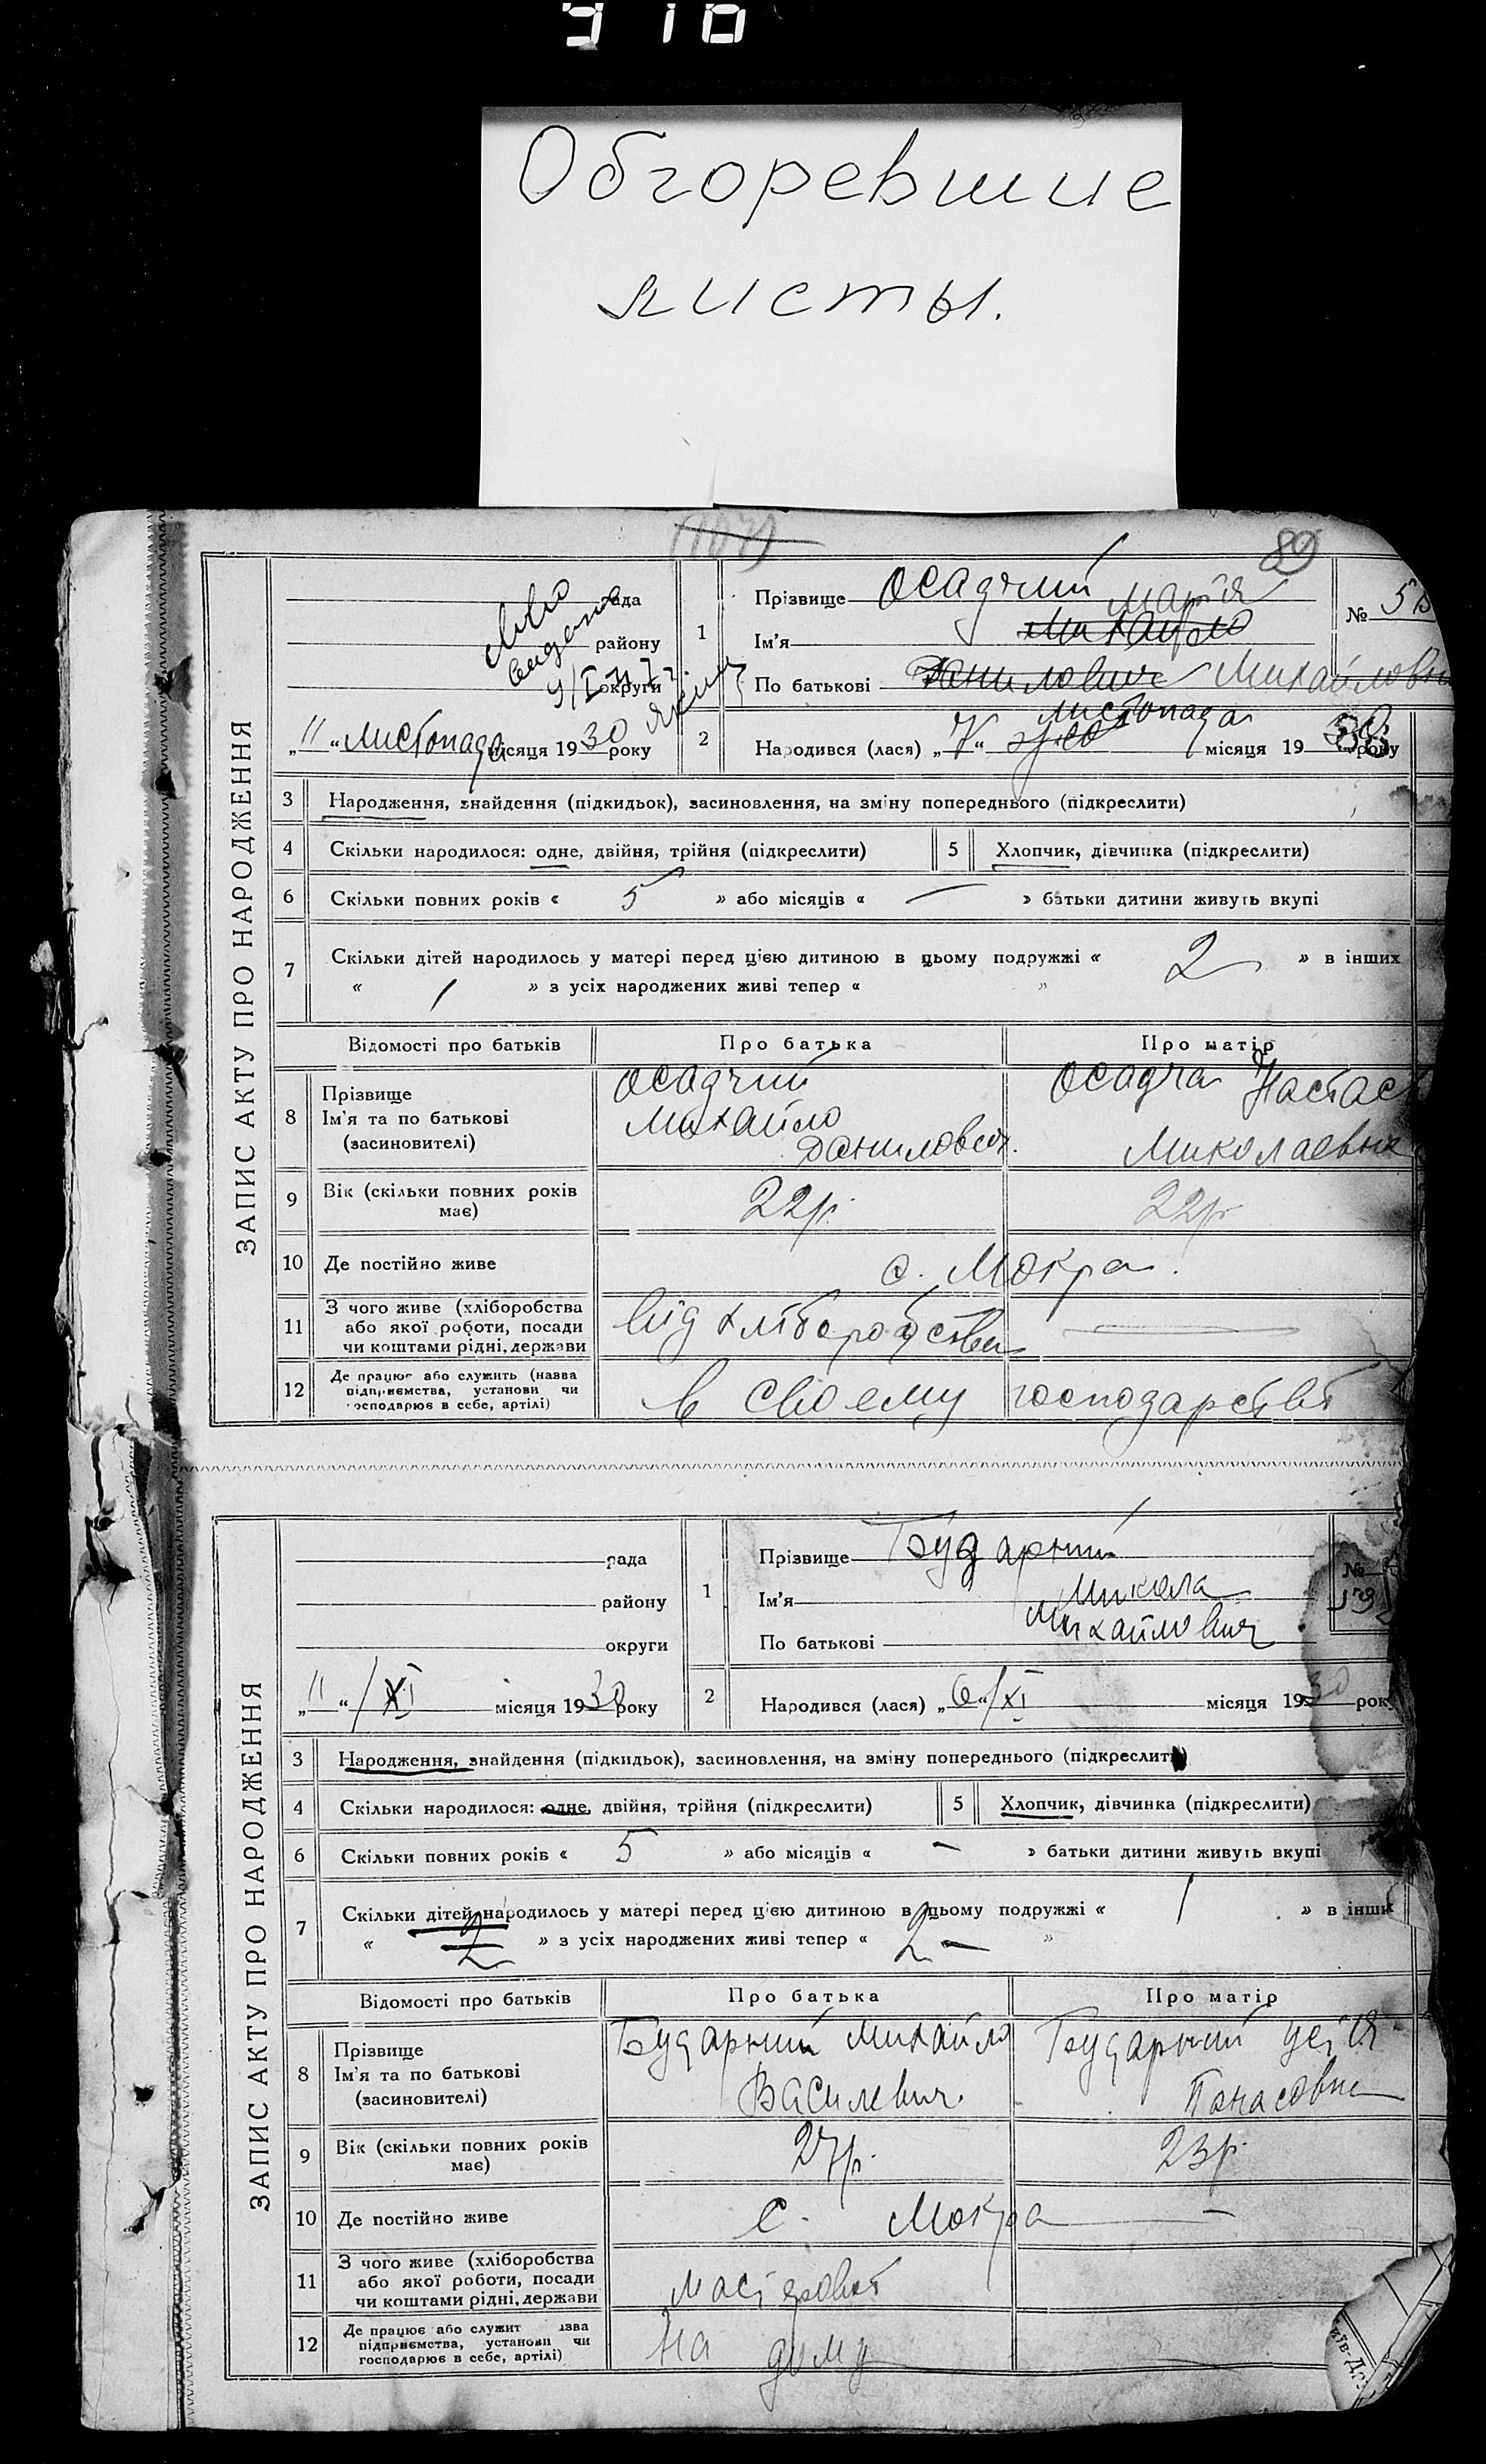 910
Обгоревшие
листы.
(107)
89
ЗАПИС АКТУ ПРО НАРОДЖЕННЯ
рада
району
округи
„11“ листопада місяця 1930 року
1
Прізвище Осадчий
Марія
Ім'я Михайло
По батькові Данилович Михайловна
№ 5
2
листопада
Народився (лася) „7“ місяця 1930 року
3 Народження, знайдення (підкидьок), засиновлення, на зміну попереднього (підкреслити)
4 Скільки народилося: одне, двійня, трійня (підкреслити)
5 Хлопчик, дівчинка (підкреслити)
6 Скільки повних років « 5 » або місяців « — » батьки дитини живуть вкупі
7 Скільки дітей народилось у матері перед цією дитиною в цьому подружжі « 2 » в інших
« 1 » з усіх народжених живі тепер « »
Відомості про батьків Про батька Про матір
8 Прізвище
Ім'я та по батькові
(засиновителі)
Осадчий
Михайло
Данилович.
Осадча
Миколаевна
9 Вік (скільки повних років
має)
22р. 22р.
10 Де постійно живе с. Мокра.
11 З чого живе (хліборобства
або якої роботи, посади
чи коштами рідні, держави
від хліборобства —
12 Де працює або служить (назва
підприємства, установи чи
господарює в себе, артілі)
в своему господарстві
ЗАПИС АКТУ ПРО НАРОДЖЕННЯ
рада
району
округи
„11“ /XI місяця 1930 року
1
Прізвище Бударний
Ім'я Микола
По батькові Михайлович
№
2
Народився (лася) „6“ /XI місяця 1930 року
3 Народження, знайдення (підкидьок), засиновлення, на зміну попереднього (підкреслити)
4 Скільки народилося: одне, двійня, трійня (підкреслити)
5 Хлопчик, дівчинка (підкреслити)
6 Скільки повних років « 5 » або місяців « — » батьки дитини живуть вкупі
7 Скільки дітей народилось у матері перед цією дитиною в цьому подружжі « 1 » в інших
« 2 » з усіх народжених живі тепер « 2 — »
Відомості про батьків Про батька Про матір
8 Прізвище
Ім'я та по батькові
(засиновителі)
Бударний Михайло
Василевич
Бударний
Панасовна
9 Вік (скільки повних років
має)
27р. 23р.
10 Де постійно живе с. Мокра —
11 З чого живе (хліборобства
або якої роботи, посади
чи коштами рідні, держави
12 Де працює або служит зва
підприємства, установи чи
господарює в себе, артілі)
на дому